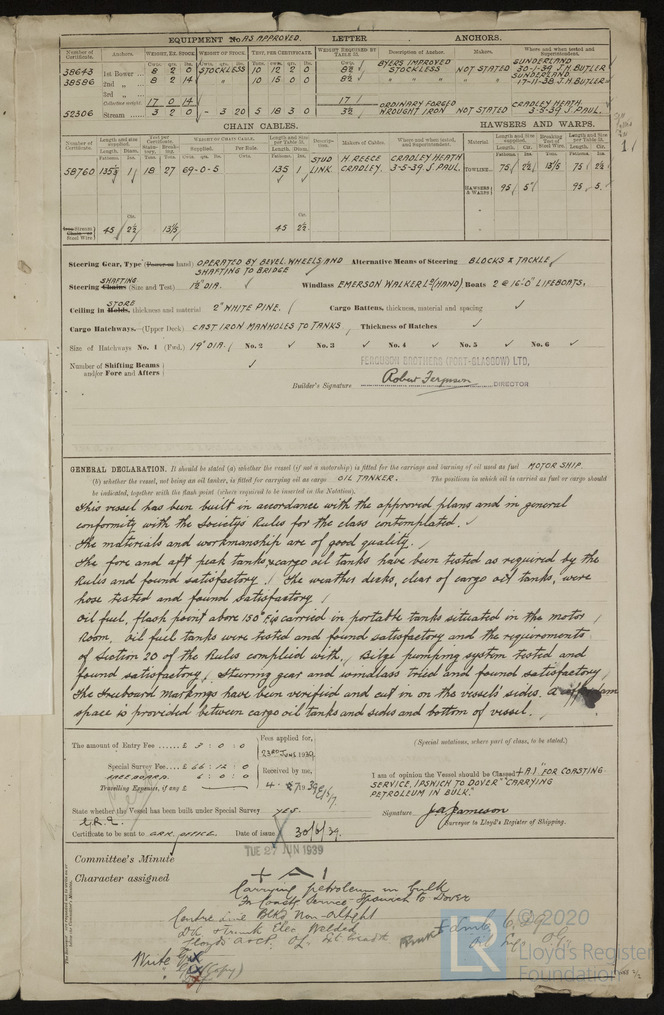 EQUIPMENT No. AS APPROVED. LETTER ANCHORS.
Number of Certificate. Anchors. WEIGHT, EX. STOCK. WEIGHT OF STOCK. TEST, PER CERTIFICATE. WEIGHT REQUIRED BY TABLE 53. Description of Anchor. Makers. Where and when tested and Superintendent.
38643 1st Bower 8 2 0 STOCKLESS 10 12 2 0 8½ BYERS IMPROVED STOCKLESS NOT STATED SUNDERLAND 30-1-39 J.H. BUTLER
38586 2nd „ 8 2 14 10 15 0 0 8½ " " " " SUNDERLAND 17-11-38 J.H. BUTLER
3rd „
Collective weight 17 0 14 17
52306 Stream 3 2 0 - 3 20 5 18 3 0 3½ ORDINARY FORGED WROUGHT IRON NOT STATED CRADLEY HEATH 3-5-39 J. PAUL.
CHAIN CABLES. HAWSERS AND WARPS.
Number of Certificate. Length and size supplied. Test per Certificate. WEIGHT OF CHAIN CABLE. Length and size per Table 53. Description. Makers of Cables. Where and when tested, and Superintendent. Material. Length and Size supplied. Breaking Test. Length and Size per Table 53.
58760 135 1 18 27 69-0-5 135 1 STUD LINK H REECE CRADLEY. CRADLEY HEATH 3-5-39. J. PAUL. TOWLINE 75 2½ 13/5 75 2½
HAWSERS & WARPS 95 5 95 5
Steel Wire 45 2½ 13/5 45 2½
Steering Gear, Type (Power or hand) OPERATED BY BEVEL WHEELS AND SHAFTING TO BRIDGE Alternative Means of Steering BLOCKS & TACKLE
Steering Chains SHAFTING (Size and Test) 1½" DIA. Windlass EMERSON WALKER LD (HAND) Boats 2 @ 16'-0" LIFEBOATS.
Ceiling in Holds, STORE thickness and material 2" WHITE PINE. Cargo Battens, thickness, material and spacing
Cargo Hatchways.—(Upper Deck) CAST IRON MANHOLES TO TANKS Thickness of Hatches
Size of Hatchways No. 1 (Fwd.) 19" DIA. No. 2 No. 3 No. 4 No. 5 No. 6
Number of Shifting Beams and/or Fore and Afters
FERGUSON BROTHERS (PORT-GLASGOW) LTD,
Builder's Signature Robert Ferguson DIRECTOR
GENERAL DECLARATION. It should be stated (a) whether the vessel (if not a motorship) is fitted for the carriage and burning of oil used as fuel MOTOR SHIP
(b) whether the vessel, not being an oil tanker, is fitted for carrying oil as cargo OIL TANKER. The positions in which oil is carried as fuel or cargo should
be indicated, together with the flash point (where required to be inserted in the Notation).
This vessel has been built in accordance with the approved plans and in general
conformity with the Society's Rules for the class contemplated.
The materials and workmanship are of good quality.
The fore and aft peak tanks, & cargo oil tanks have been tested as required by the
Rules and found satisfactory. The weather decks, clear of cargo oil tanks, were
hose tested and found satisfactory.
Oil fuel, flash point above 150°F is carried in portable tanks situated in the motor
Room. Oil fuel tanks were tested and found satisfactory and the requirements
of Section 20 of the Rules complied with. Bilge pumping system tested and
found satisfactory. Steering gear and windlass tried and found satisfactory
The Freeboard markings have been verified and cut in on the vessels' sides. A cofferdam
space is provided between cargo oil tanks and sides and bottom of vessel.
The amount of Entry Fee £ 3 : 0 : 0 Fees applied for, 23rd June 1939 (Special notations, where part of class, to be stated.)
Special Survey Fee £ 66 : 12 : 0 Received by me,
FREEBOARD 6 : 0 : 0
Travelling Expenses, if any £
I am of opinion the Vessel should be Classed + A 1 "FOR COASTING SERVICE, IPSWICH TO DOVER" "CARRYING PETROLEUM IN BULK."
State whether the Vessel has been built under Special Survey YES.
Signature J.A. Jameson
Surveyor to Lloyd's Register of Shipping.
Certificate to be sent to GRK. OFFICE. Date of issue 30/6/39.
TUE 27 JUN 1939
Committee's Minute
Character assigned + A 1
Carrying petroleum in bulk
In Coasting Service Ipswich to Dover
Centre line Blkd Non-Oiltight
Dk & trunk Elec Welded
Lloyd's A & CP.
Write
(Copy)
© 2020
LR Lloyd's Register Foundation